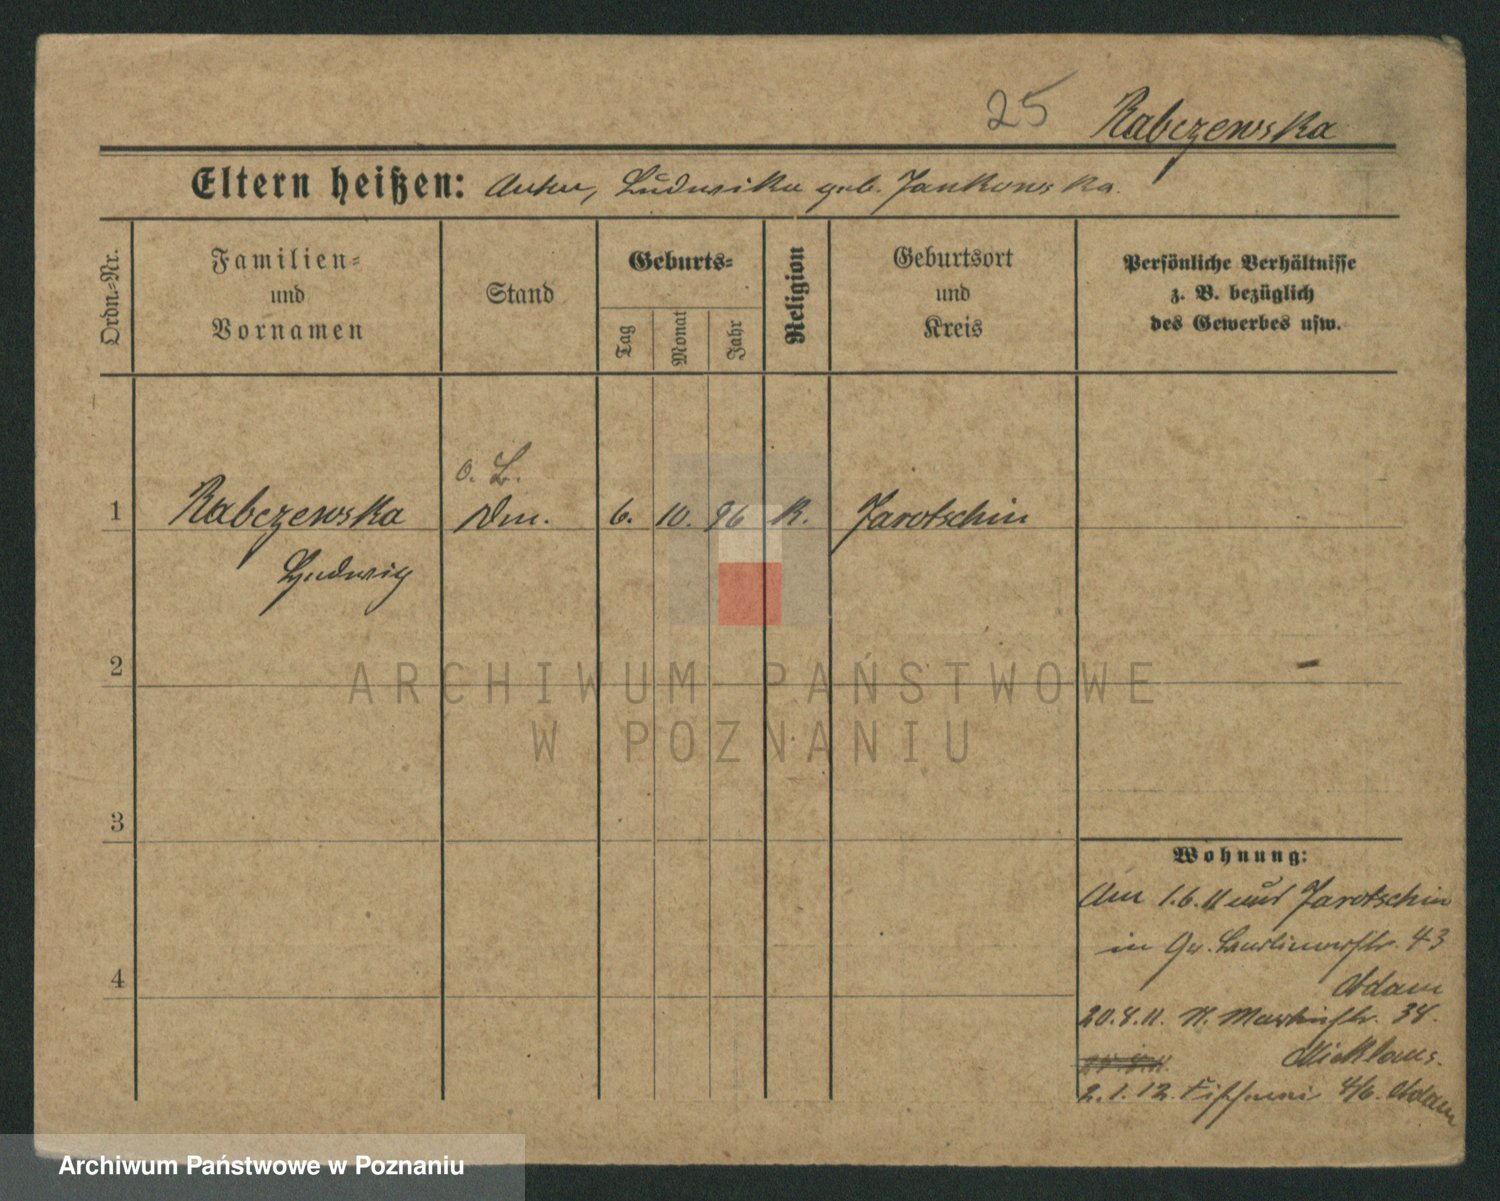 25 Rabczewska
Eltern heißen: Ludwika geb. Jankowska.
Ordn.-Nr.
Familien-
und
Vornamen
Stand
Geburts-
Tag
Monat
Jahr
Religion
Geburtsort
und
Kreis
Persönliche Verhältnisse
z. B. bezüglich
des Gewerbes usw.
o. L.
1 Rabczewska 6. 10. 96 K. Jarotschin
Ludwig
2
3
4
Wohnung:
Am 1.6.11 aus Jarotschin
in Gr. 43
Adam
20.8.11. St. Martinstr. 38.
Micklaus.
2.1.12. 4/6. Adam
ARCHIWUM PAŃSTWOWE
W POZNANIU
Archiwum Państwowe w Poznaniu